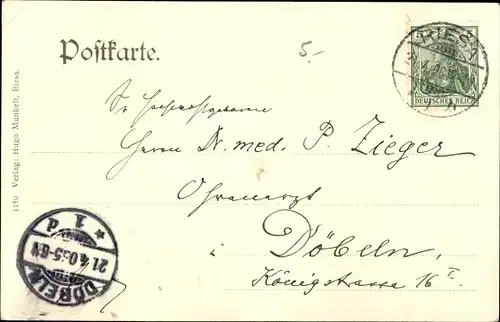 Postkarte.
5.-
RIESA
DEUTSCHES REICH
Sr Hochwohlgeboren
Herrn Dr. med. P. Zieger
Ohrenarzt
i Döbeln.
Königstrasse 16 I.
1150 Verlag: Hugo Munkelt, Riesa.
* 1 d
21.4.05.5-6N
DÖBELN